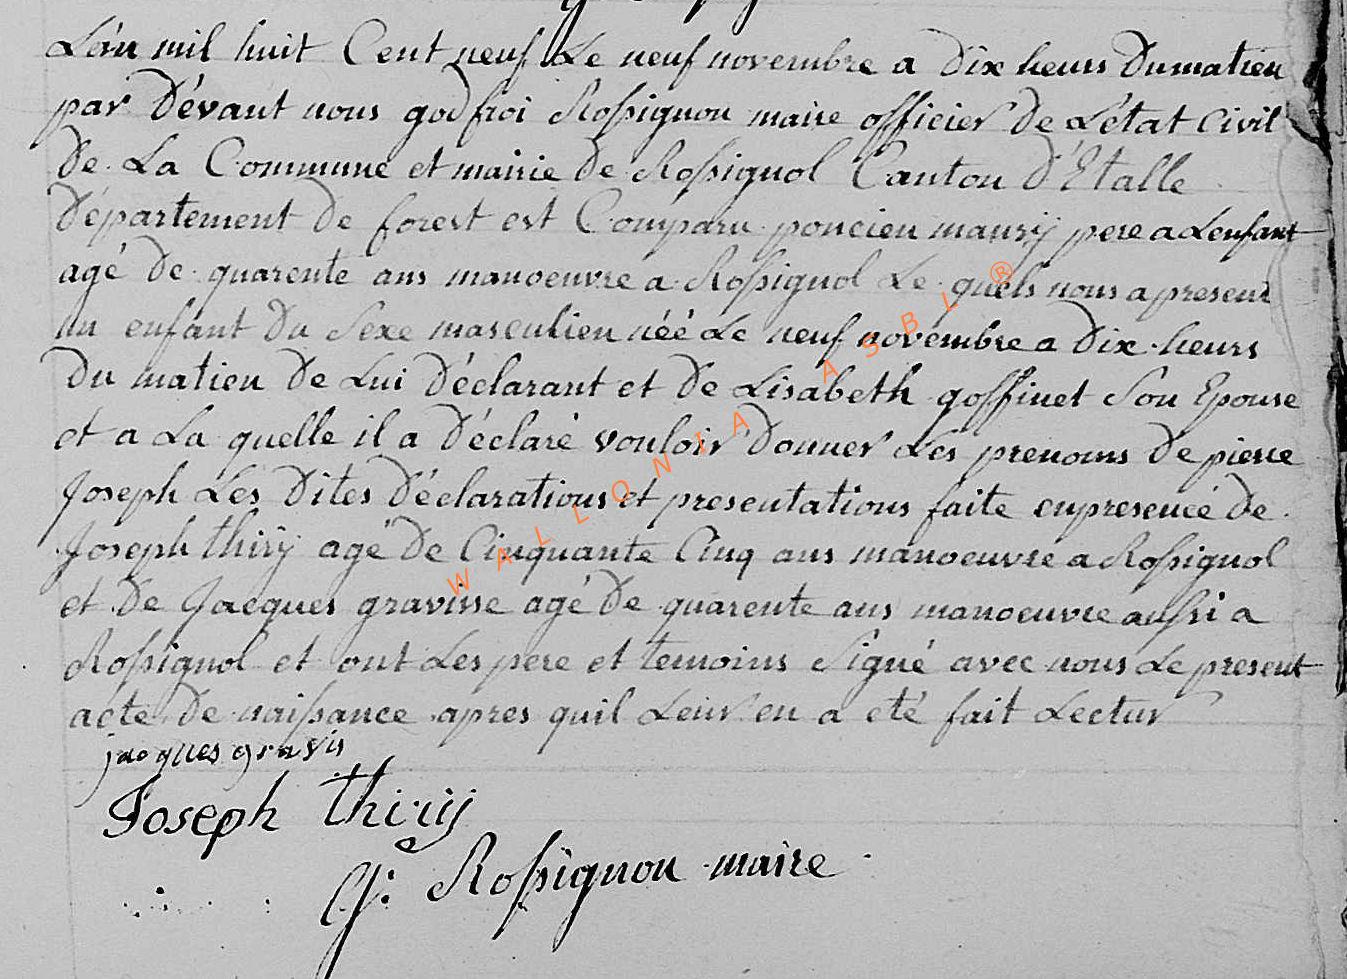 L'an mil huit Cent neuf Le neuf novembre a Dix heurs Dumatieu
par Dévant nous godfroi Rossignon maire officier De L'état Civil
De La Commune et mairie de Rossignol Canton D'Etalle
Département De forest est Comparu poncien maurÿ pere a Lenfant
agé De quarente ans manoeuvre a Rossignol Le quels nous a presenté
un enfant Du Sexe masculien néé Le neuf novembre a Dix heurs
Du matieu De Lui Déclarant et De Lisabeth goffinet Son Epouse
et a La quelle il a Déclaré vouloir Donner Les prenoms De pierre
Joseph Les Dites Déclarations et presentations faite enpresence De
Joseph thirÿ agé De Cinquante Cinq ans manoeuvre a Rossignol
et De Jacques gravisse agé De quarente ans manoeuvre aussi a
Rossignol et ont Les pere et temoins Signé avec nous Le present
acte De naissance apres quil Leur en a eté fait Lectur
jacques gravis
Joseph thirÿ
G: Rossignon maire
WALLONIA ASBL ®